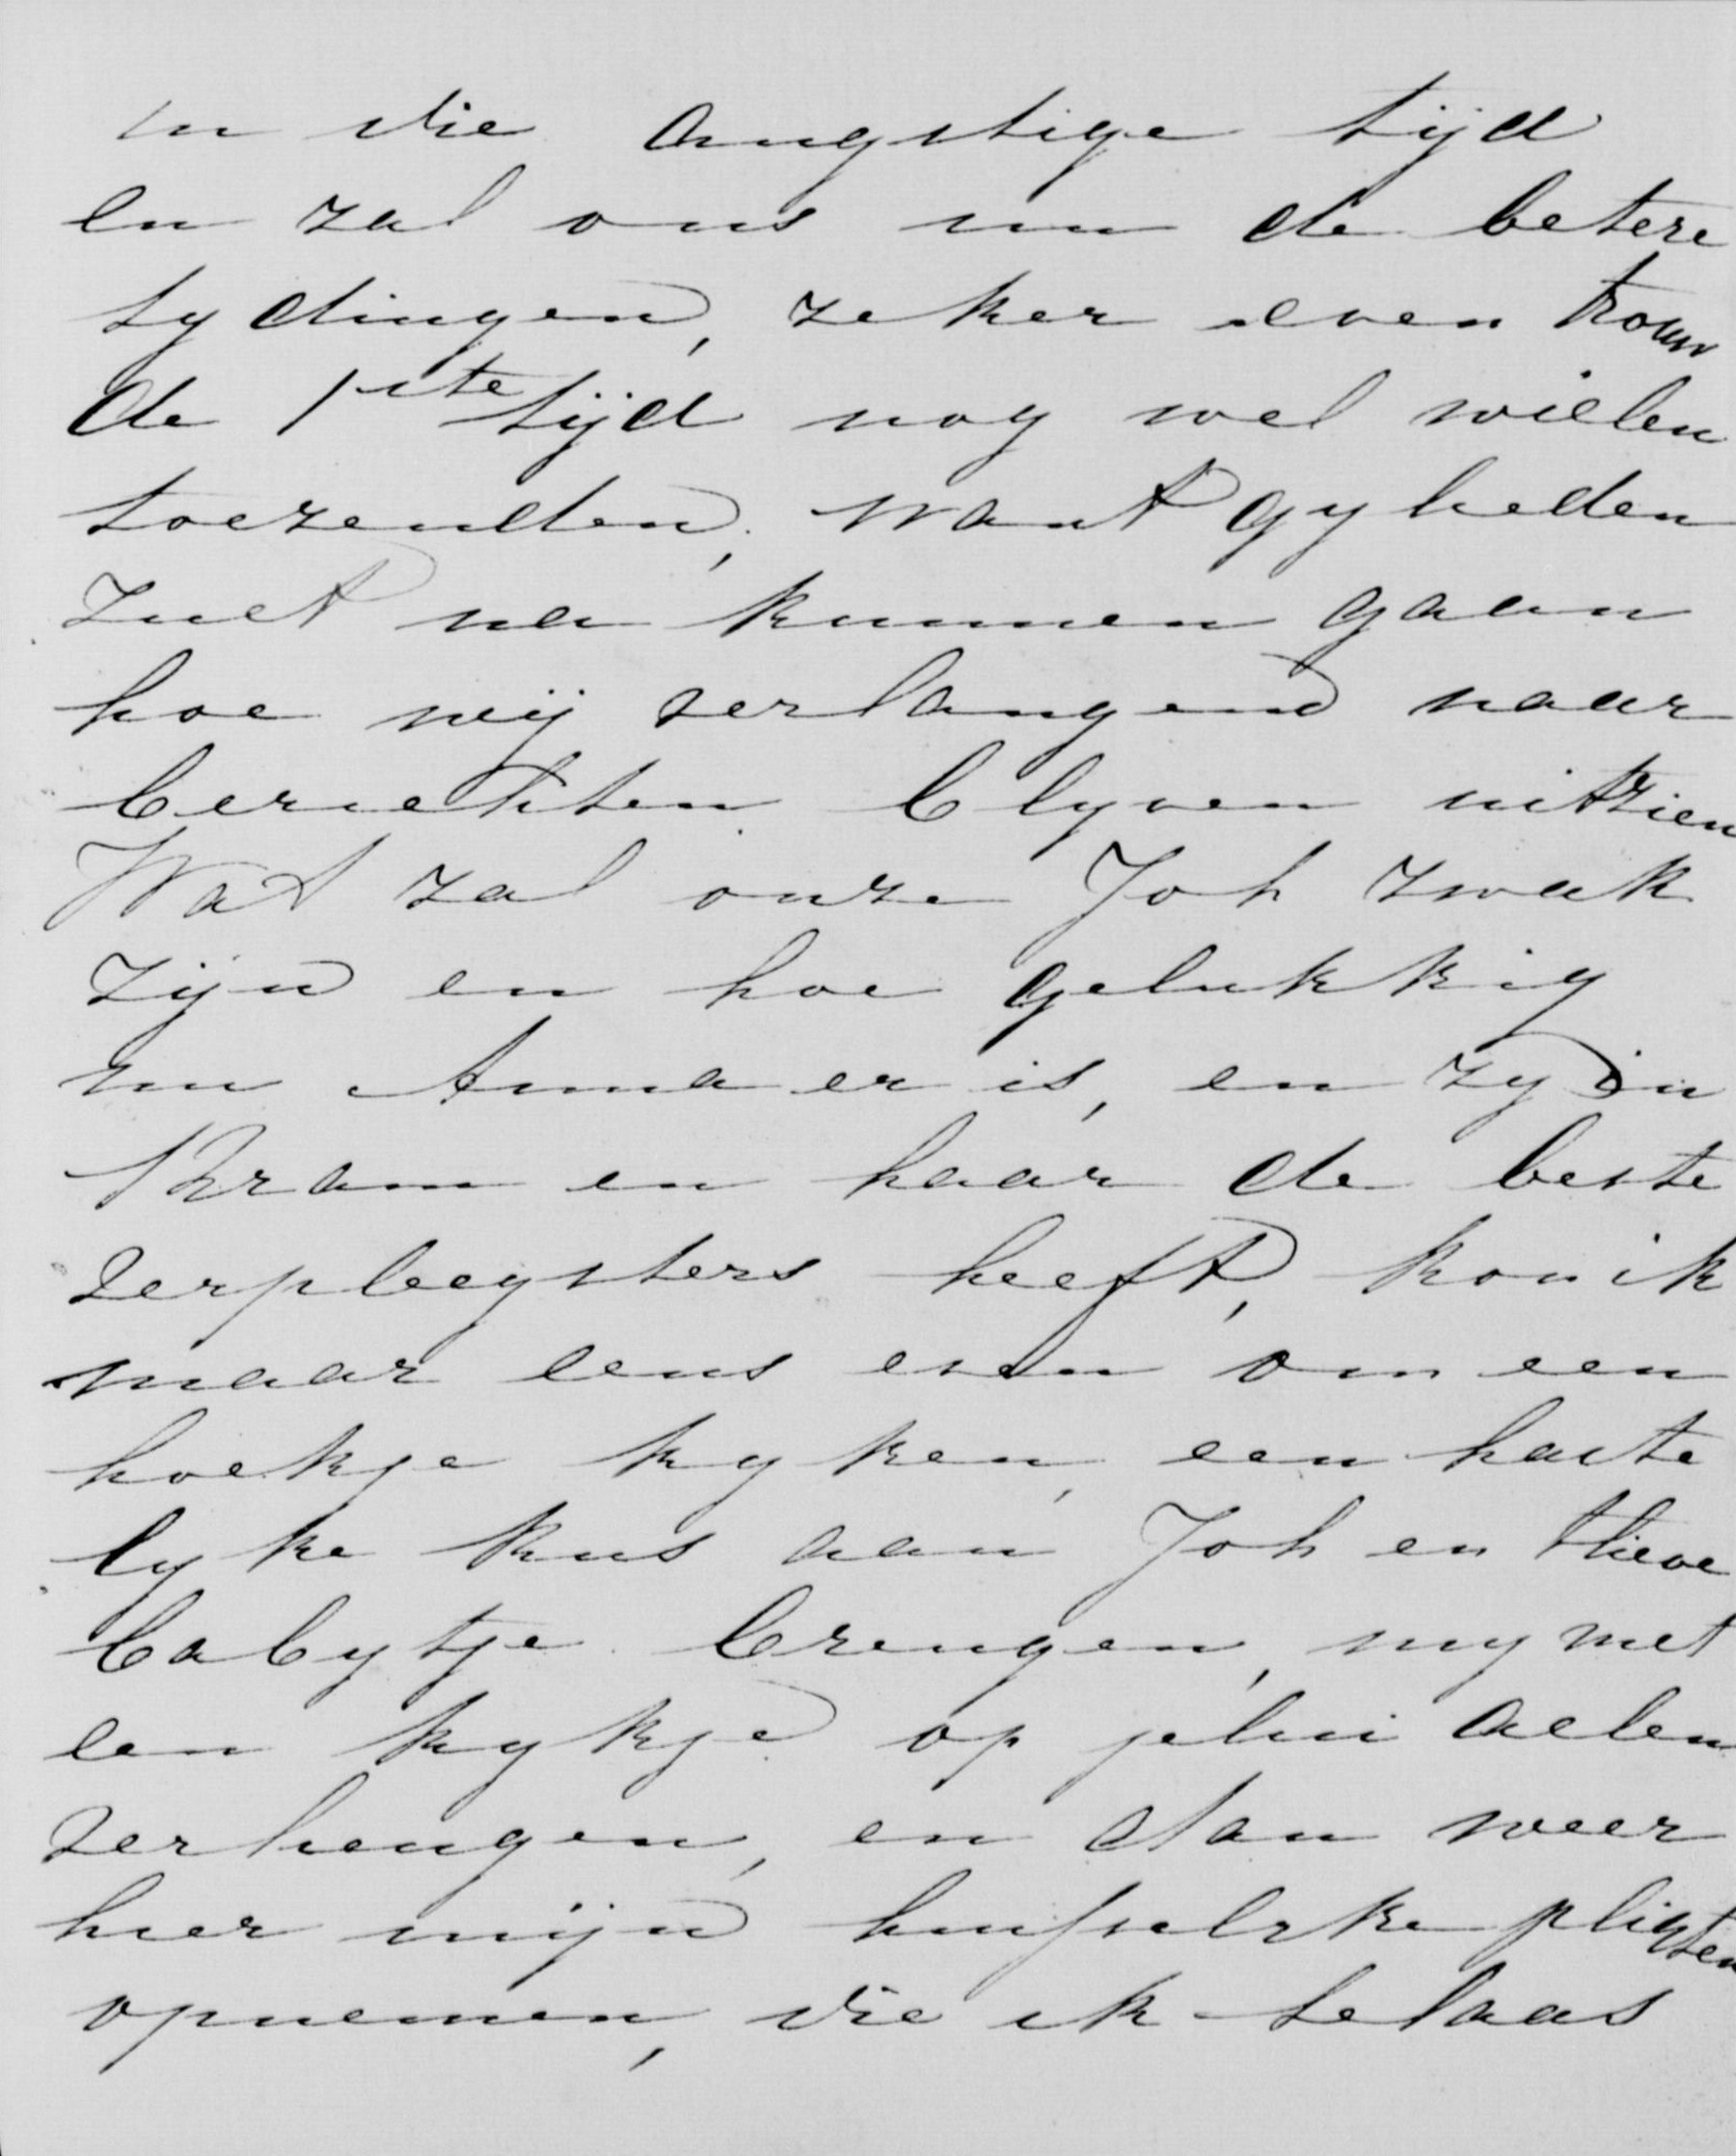 in die angstige tijd
en zal ons nu de betere
tydingen, zeker even trouw
de 1ste tijd nog wel willen
toezenden, want gy lieden
zult na kunnen gaan
hoe wij verlangend naar
berichten blyven uitzien
Wat zal onze Joh zwak
zijn en hoe gelukkig
nu Anna er is, en zy in
Bram en haar de beste
verpleegsters heeft, kon ik
maar eens even om een
hoekje kyken, een harte
lyke kus aan Joh en t lieve
babytje brengen, my met
een kykje op jelui allen
verheugen, en dan weer
hier mijn huislyke pligten
opnemen, die ik helaas